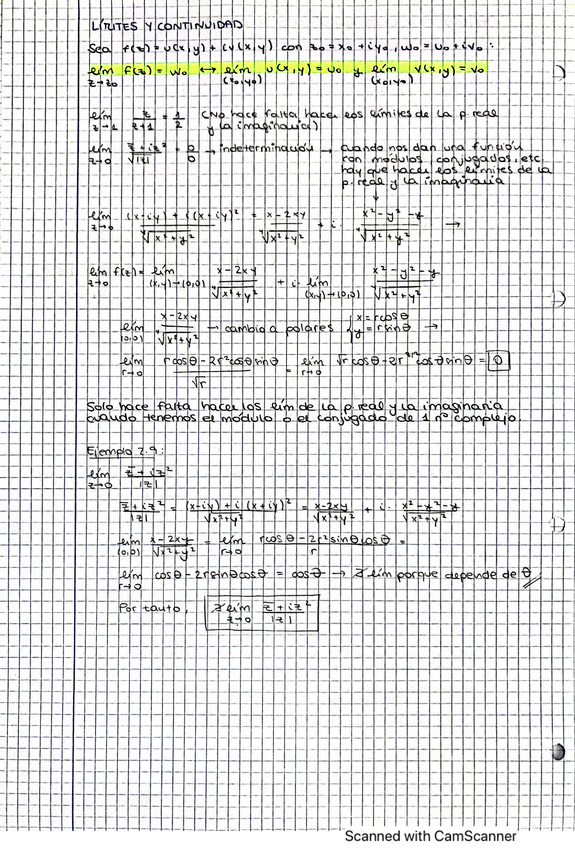 LÍMITES Y CONTINUIDAD
Sea f(z) = u(x,y) + i v(x,y) con z₀ = x₀ + iy₀, w₀ = u₀ + iv₀ :
lím z→z₀ f(z) = w₀ ↔ lím (x₀,y₀) u(x,y) = u₀ y lím (x₀,y₀) v(x,y) = v₀
lím z→1 z/(z+1) = 1/2 (No hace falta hacer los límites de la p. real
y la imaginaria)
lím z→0 (z̄ + iz²)/√|z| = 0/0 → indeterminación → cuando nos dan una función
con módulos, conjugados, etc.
hay que hacer los límites de la
p. real y la imaginaria
↓
lím z→0 ((x-iy) + i(x+iy)²)/⁴√(x²+y²) = (x-2xy)/⁴√(x²+y²) + i · (x²-y²-y)/⁴√(x²+y²) →
lím z→0 f(z) = lím (x,y)→(0,0) (x-2xy)/⁴√(x²+y²) + i · lím (x,y)→(0,0) (x²-y²-y)/⁴√(x²+y²)
lím (0,0) (x-2xy)/⁴√(x²+y²) → cambio a polares { x = rcosθ
y = rsinθ →
lím r→0 (rcosθ - 2r²cosθsinθ)/√r = lím r→0 √r cosθ - 2r^(3/2) cosθsinθ = 0
Solo hace falta hacer los lím de la p. real y la imaginaria
cuando tenemos el módulo o el conjugado de 1 nº complejo.
Ejemplo 2.9:
lím z→0 (z̄ + iz²)/|z|
(z̄ + iz²)/|z| = ((x-iy) + i(x+iy)²)/√(x²+y²) = (x-2xy)/√(x²+y²) + i · (x²-y²-y)/√(x²+y²)
lím (0,0) (x-2xy)/√(x²+y²) = lím r→0 (rcosθ - 2r²sinθcosθ)/r =
lím r→0 cosθ - 2rsinθcosθ = cosθ → ∄ lím porque depende de θ
Por tanto, ∄ lím z→0 (z̄ + iz²)/|z|
Scanned with CamScanner